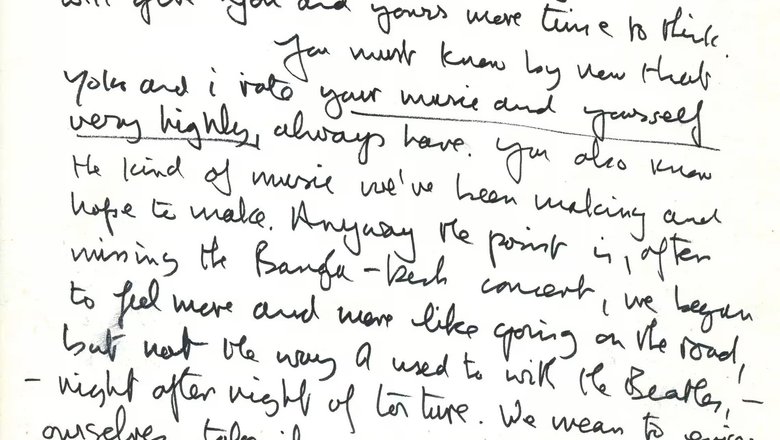 will give you and yours more time to think.
You must know by now that
Yoko and i rate your music and yourself
very highly, always have. You also know
the kind of music we've been making and
hope to make. Anyway the point is, after
missing the Bangla-desh concert, we began
to feel more and more like going on the road,
but not the way I used to with the Beatles, –
– night after night of torture. We mean to enjoy
ourselves, take it